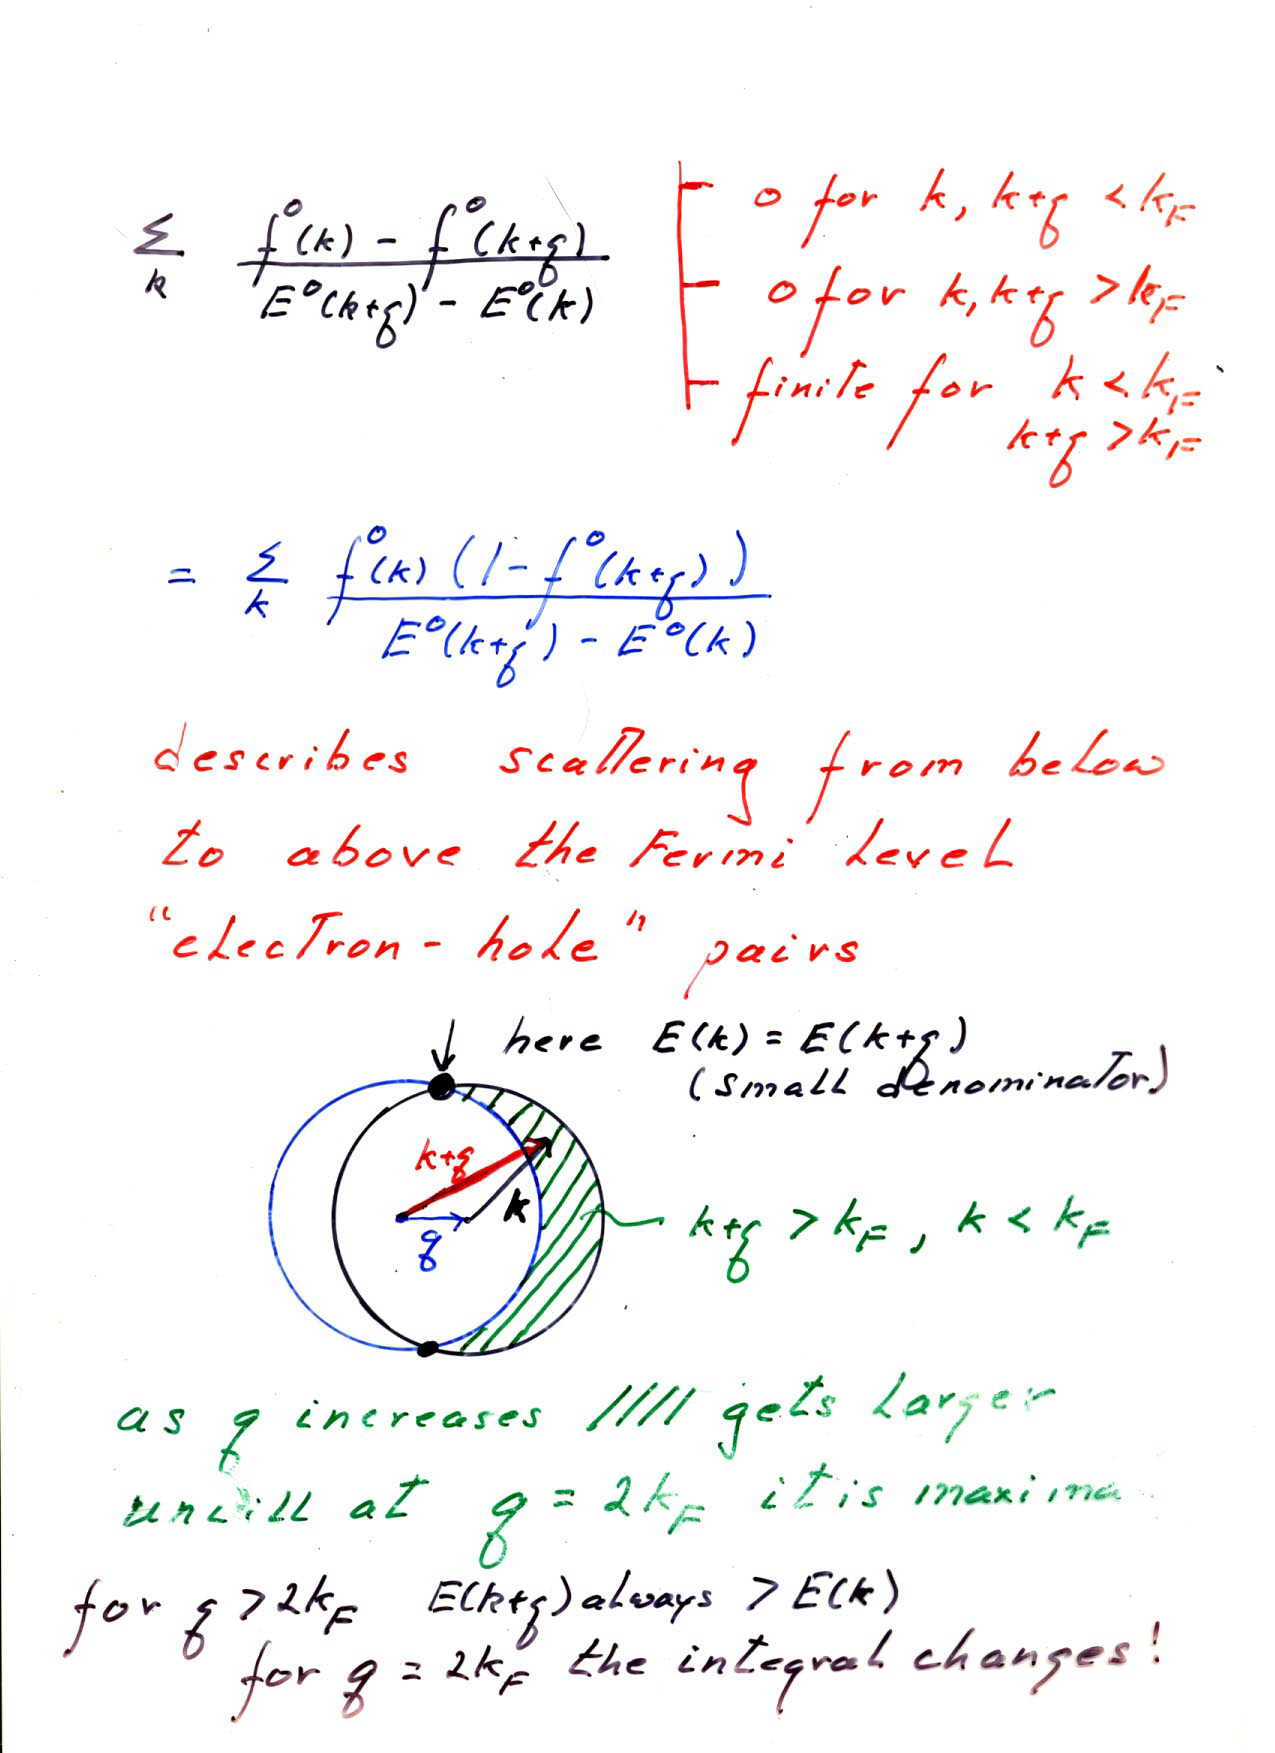 Σ_k (f⁰(k) - f⁰(k+q)) / (E⁰(k+q) - E⁰(k))
0 for k, k+q < k_F
0 for k, k+q > k_F
finite for k < k_F
k+q > k_F
= Σ_k f⁰(k) (1 - f⁰(k+q)) / (E⁰(k+q) - E⁰(k))
describes scattering from below
to above the Fermi level
"electron-hole" pairs
here E(k) = E(k+q)
(small denominator)
k+q
k
q
k+q > k_F, k < k_F
as q increases //// gets larger
untill at q = 2k_F it is maxima
for q > 2k_F E(k+q) always > E(k)
for q = 2k_F the integral changes!